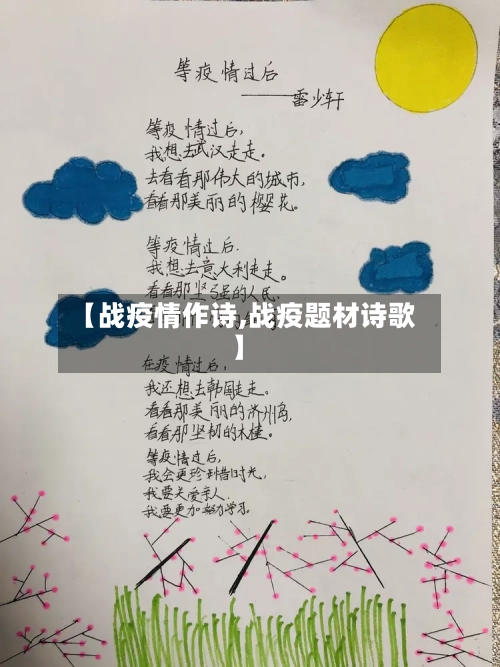 等疫情过后
——雷少轩
等疫情过后,
我想去武汉走走。
去看看那伟大的城市,
看看那美丽的樱花。
等疫情过后.
我想去意大利走走。
看看那坚强的人民,
【战疫情作诗,战疫题材诗歌
】
在疫情过后,
我还想去韩国走走。
看看那美丽的济州岛,
看看那坚韧的木槿。
等疫情过后,
我会更珍惜时光,
我要关爱亲人.
我要更加努力学习。